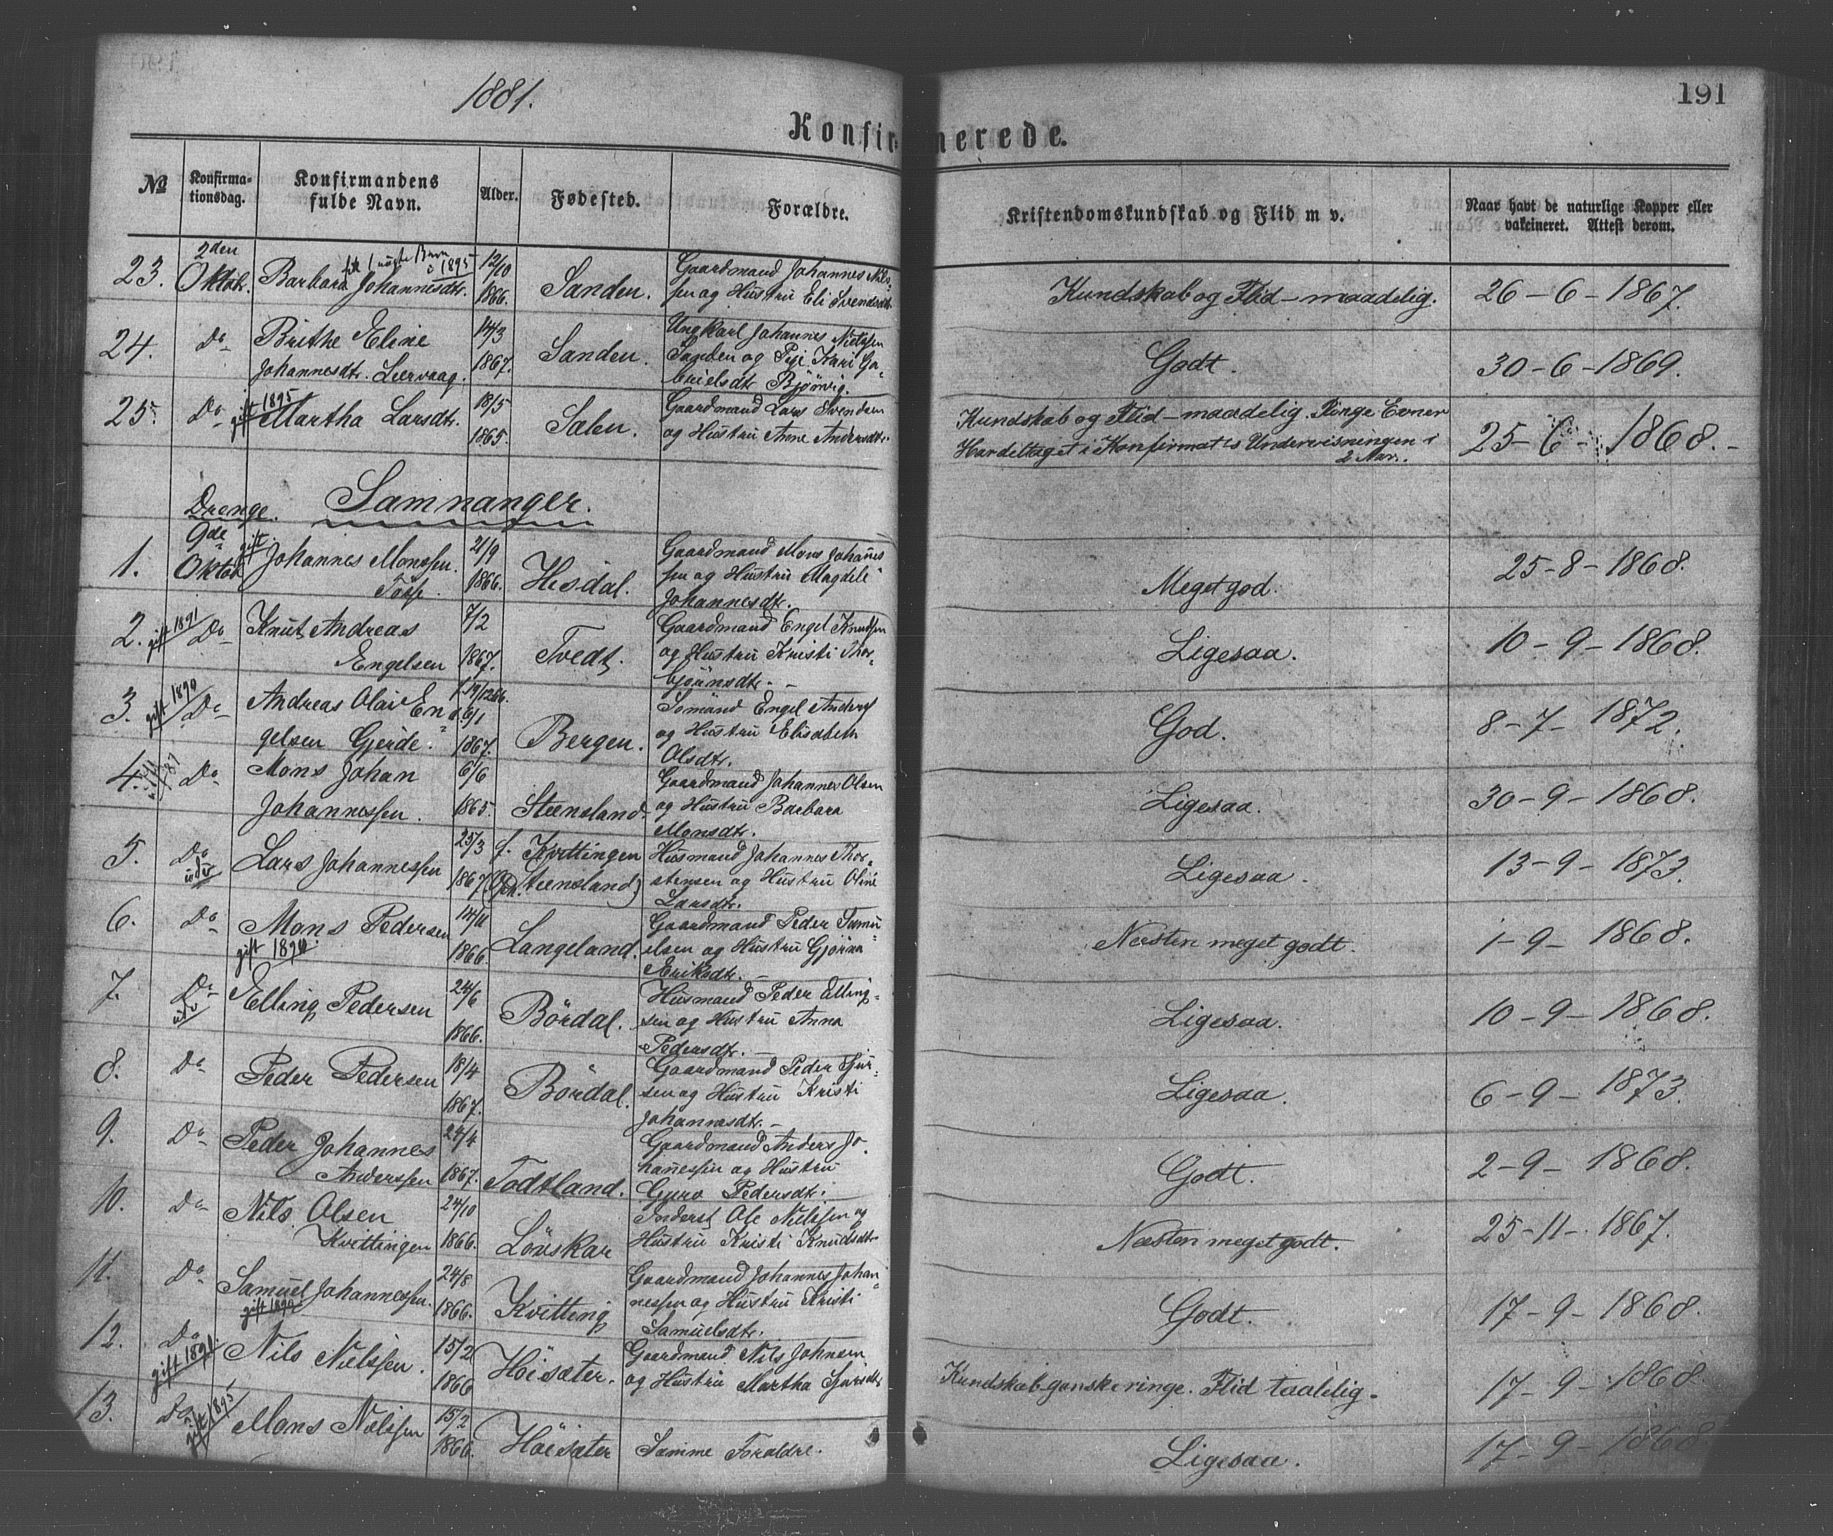 1881.
191
Konfirmerede.
No Konfirmationsdag. Konfirmandens fulde Navn. Alder. Fødested. Forældre. Kristendomskundskab og Flid m v. Naar havt de naturlige Kopper eller vakcineret. Attest derom.
23. 2den Oktbr. Barbara Johannesdtr. 12/10 1866. Sanden. Gaardmand Johannes Nilssen og Hustru Eli Svendsdtr. Kundskab og Flid - maadelig. 26-6-1867.
24. Do Brithe Eline Johannesdtr. Leervaag. 14/3 1867. Sanden. Ungkarl Johannes Nielssen Sanden og Pige Kari Gabrielsdtr. Bjørvig. Godt. 30-6-1869.
25. Do gift 1895 Martha Larsdtr. 18/5 1865. Salen. Gaardmand Lars Svendsen og Hustru Anne Andersdtr. Kundskab og Flid - maadelig. Ringe Evner Har deltaget i Konfirmat's Undervisningen i 2 Aar. 25-6-1868.-
Drenge. Samnanger.
1. 9de Oktbr gift. Johannes Monssen Tösse. 21/9 1866. Hisdal. Gaardmand Mons Johannessen og Hustru Magdeli Johannesdtr. Meget god. 25-8-1868.
2. gift 1891 Do Knut Andreas Engelsen 7/2 1867. Tvedt. Gaardmand Engel Knutsen og Hustru Kristi Thorbjörnsdtr. - Ligesaa. 10-9-1868.
3. gift 1890 Do Andreas Olai Engelsen Gjerde. 19/12 66. 6/1 1867. Bergen. Sömand Engel Anders og Hustru Elisabeth Olsdtr. God. 8-7-1872.
4. Do Mons Johan Johannessen. 6/6 1865. Steensland Gaardmand Johannes Olsen og Hustru Barbara Monsdtr. Ligesaa. 30-9-1868.
5. Do udv Lars Johannessen 25/3 1867 f. Kvittingen (Opn. Steensland) Husmand Johannes Thorstensen og Hustru Oline Larsdtr. Ligesaa. 13-9-1873.
6. Do Mons Pedersen gift 1890. 14/11 1866. Langeland. Gaardmand Peder Samuelsen og Hustru Gjörina Eriksdtr. - Næsten meget godt. 1-9-1868.
7. Do udv Elling Pedersen 24/6 1866. Bördal. Husmand Peder Ellingsen og Hustru Anna Pedersdtr. - Ligesaa. 10-9-1868.
8. Do Peder Pedersen 18/4 1867. Bördal. Gaardmand Peder Sjursen og Hustru Kristi Johannesdtr. - Ligesaa. 6-9-1873.
9. Do Peder Johannes Anderssen 24/4 1867. Todtland. Gaardmand Anders Johannessen og Hustru Gyro Pedersdtr. - Godt. 2-9-1868.
10. Do Nils Olsen Kvittingen 24/10 1866. Lövskar Inderst Ole Nielssen og Hustru Kristi Knudsdtr. Næsten meget godt. 25-11-1867.
11. Do Samuel Johannessen. gift 1890 24/8 1866. Kvitting Gaardmand Johannes Johannessen og Hustru Kristi Samuelsdtr. Godt. 17-9-1868.
12. Do gift 1891. Nils Nielssen. 15/2 1866 Höisæter. Gaardmand Nils Johnsen og Hustru Martha Sjursdtr Kundskab ganske ringe. Flid taalelig. 17-9-1868
13. Do gift 1895 Mons Nielssen 15/2 1866. Höisæter Samme Forældre. Ligesaa. 17-9-1868.